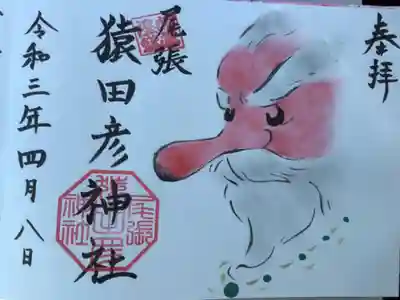 奉拝
尾張
猿田彦神社
令和三年四月八日